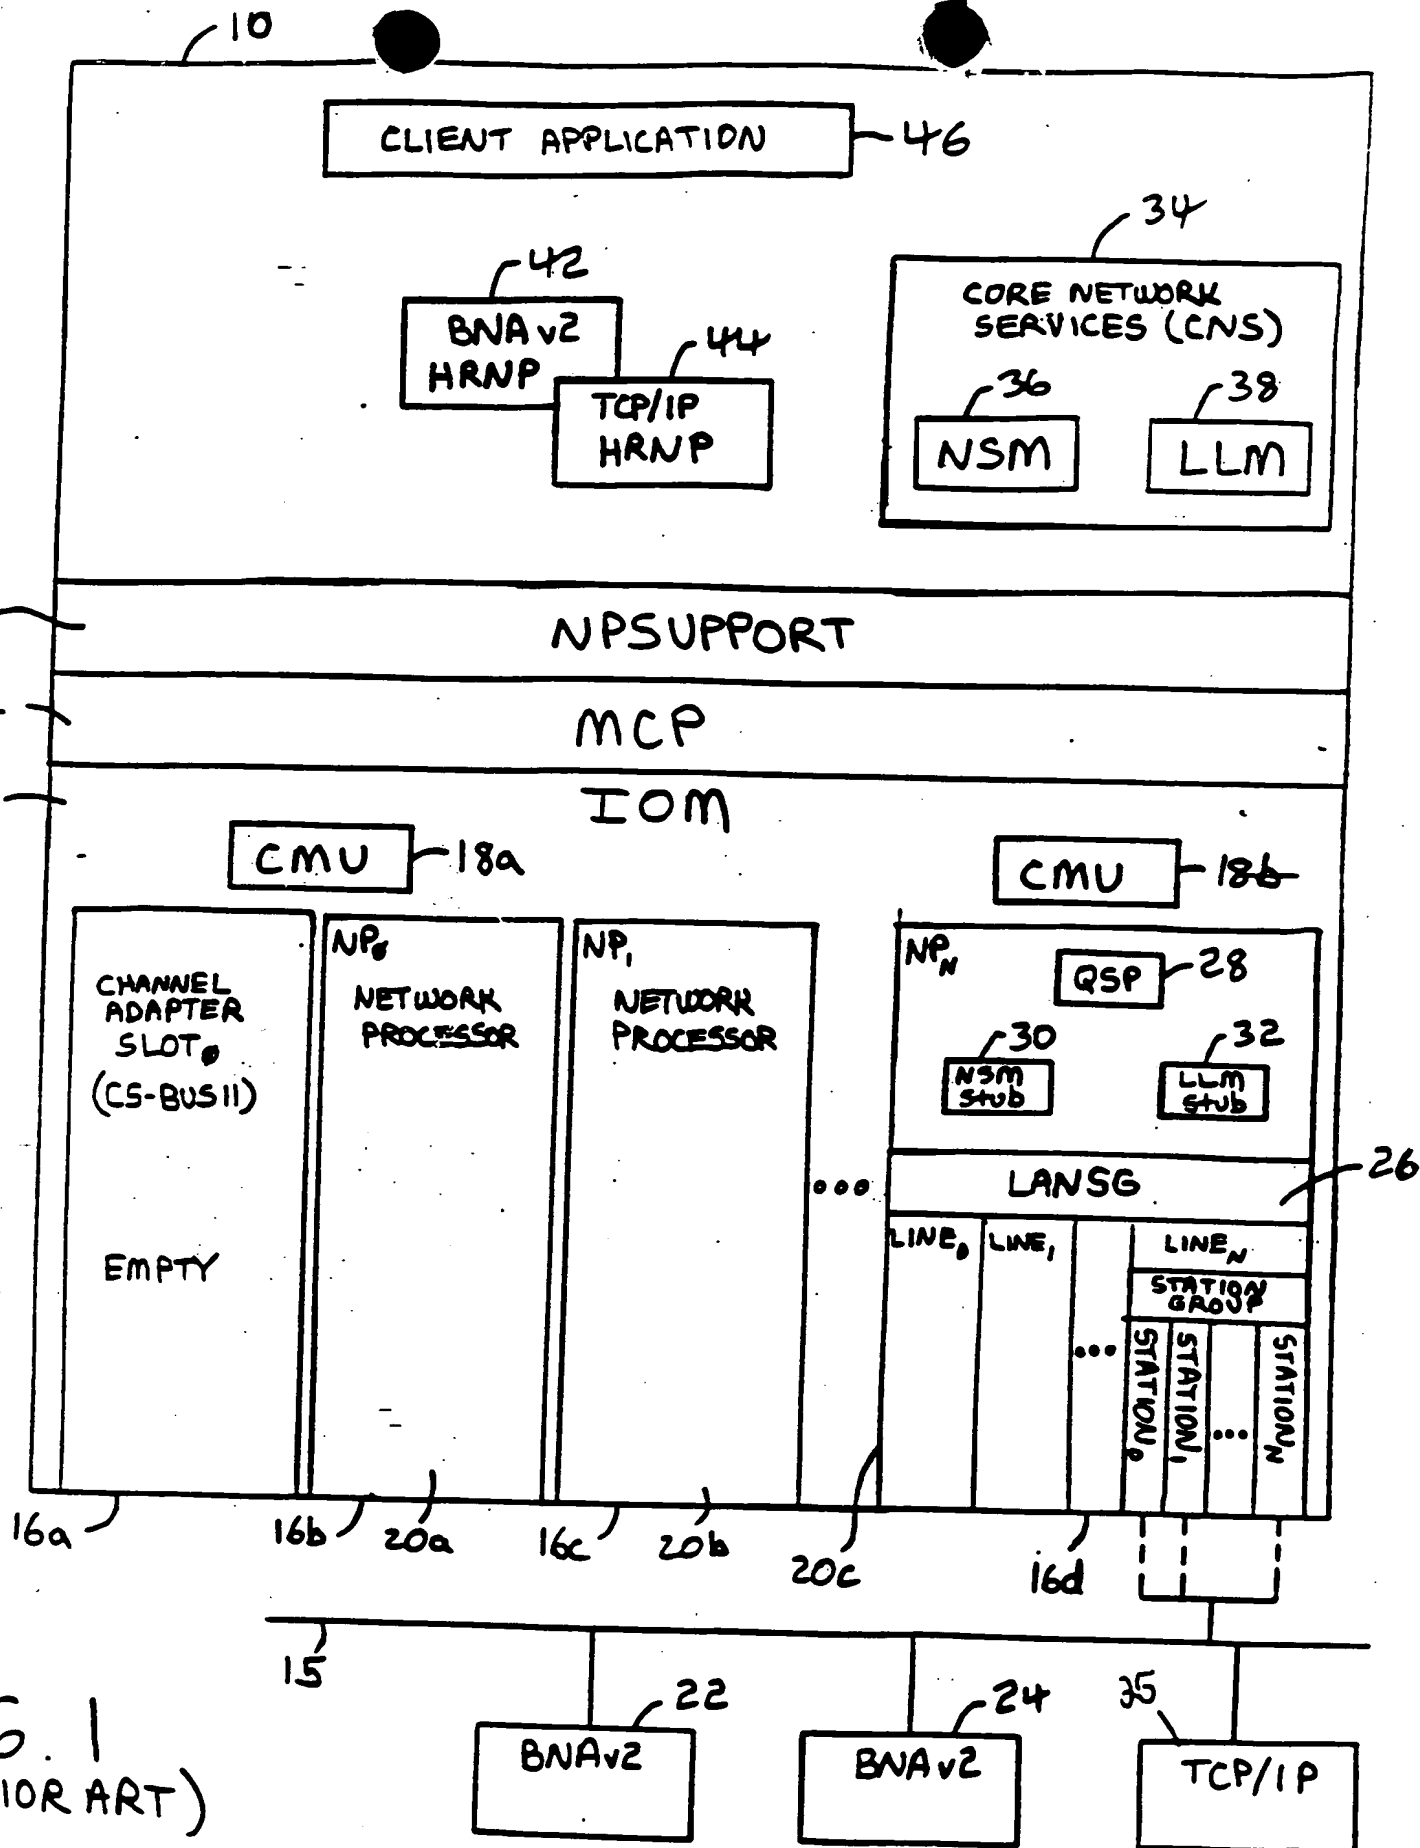 10
CLIENT APPLICATION
46
34
42
CORE NETWORK
SERVICES (CNS)
BNAv2
HRNP
44
TCP/IP
HRNP
36
38
NSM
LLM
NPSUPPORT
MCP
IOM
CMU
18a
CMU
18b
CHANNEL
ADAPTER
SLOT0
(CS-BUS II)
EMPTY
NP0
NETWORK
PROCESSOR
NP1
NETWORK
PROCESSOR
•••
NPN
QSP
28
30
32
NSM
stub
LLM
stub
LANSG
26
LINE0
LINE1
•••
LINEN
STATION
GROUP
STATION0
STATION1
•••
STATIONN
16a
16b
20a
16c
20b
20c
16d
15
22
24
35
BNAv2
BNAv2
TCP/IP
. 1
IOR ART)